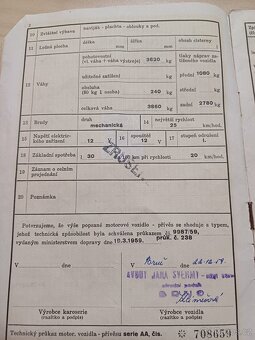 2
10 Zvláštní výbava naviják - plachta - oblouky a pod.
11 Ložná plocha délka mm šířka mm obsah cisterny l
12 Váhy
pohotovostní (vl. váha + váha výstroje) 3620 kg
užitečné zatížení kg
obsluha (80 kg 1 osoba) 240 kg
celková váha 3860 kg
tlaky náprav zatíženého vozidla
přední 1080 kg
střední kg
zadní 2780 kg
13 Brzdy druh mechanická 14 největší rychlost 25 km/hod.
15 Napětí elektrického zařízení 12 V 16 spouštěč 12 V 17 stupeň odrušení 1.
18 Základní spotřeba l 30 km při rychlosti 20 km/hod.
19 Záznam o celním projednání
20 Poznámka
ZRUŠE
Potvrzujeme, že výše popsané motorové vozidlo - přívěs se shoduje s typem,
jehož technická způsobilost byla schválena průkazem č. 9987/59,
vydaným ministerstvem dopravy dne 10.3.1959. průk. č. 238
V dne V dne
Výrobce karoserie
(razítko a podpis)
Výrobce vozidla
(razítko a podpis)
Technický průkaz motor. vozidla - přívěsu serie AA, čís. 708659